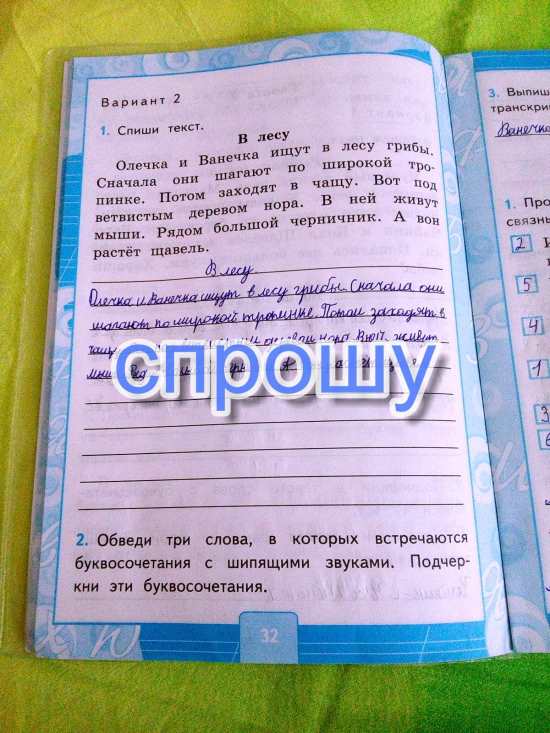 Вариант 2
1. Спиши текст.
В лесу
Олечка и Ванечка ищут в лесу грибы.
Сначала они шагают по широкой тро-
пинке. Потом заходят в чащу. Вот под
ветвистым деревом нора. В ней живут
мыши. Рядом большой черничник. А вон
растёт щавель.
В лесу.
Олечка и Ванечка ищут в лесу грибы. Сначала они
шагают по широкой тропинке. Потом заходят в
чащу нора. В ней живут
спрошу
2. Обведи три слова, в которых встречаются
буквосочетания с шипящими звуками. Подчер-
кни эти буквосочетания.
32
3. Выпиш
транскри
Ванечка
1. Про
связны
2
5
4
1
3